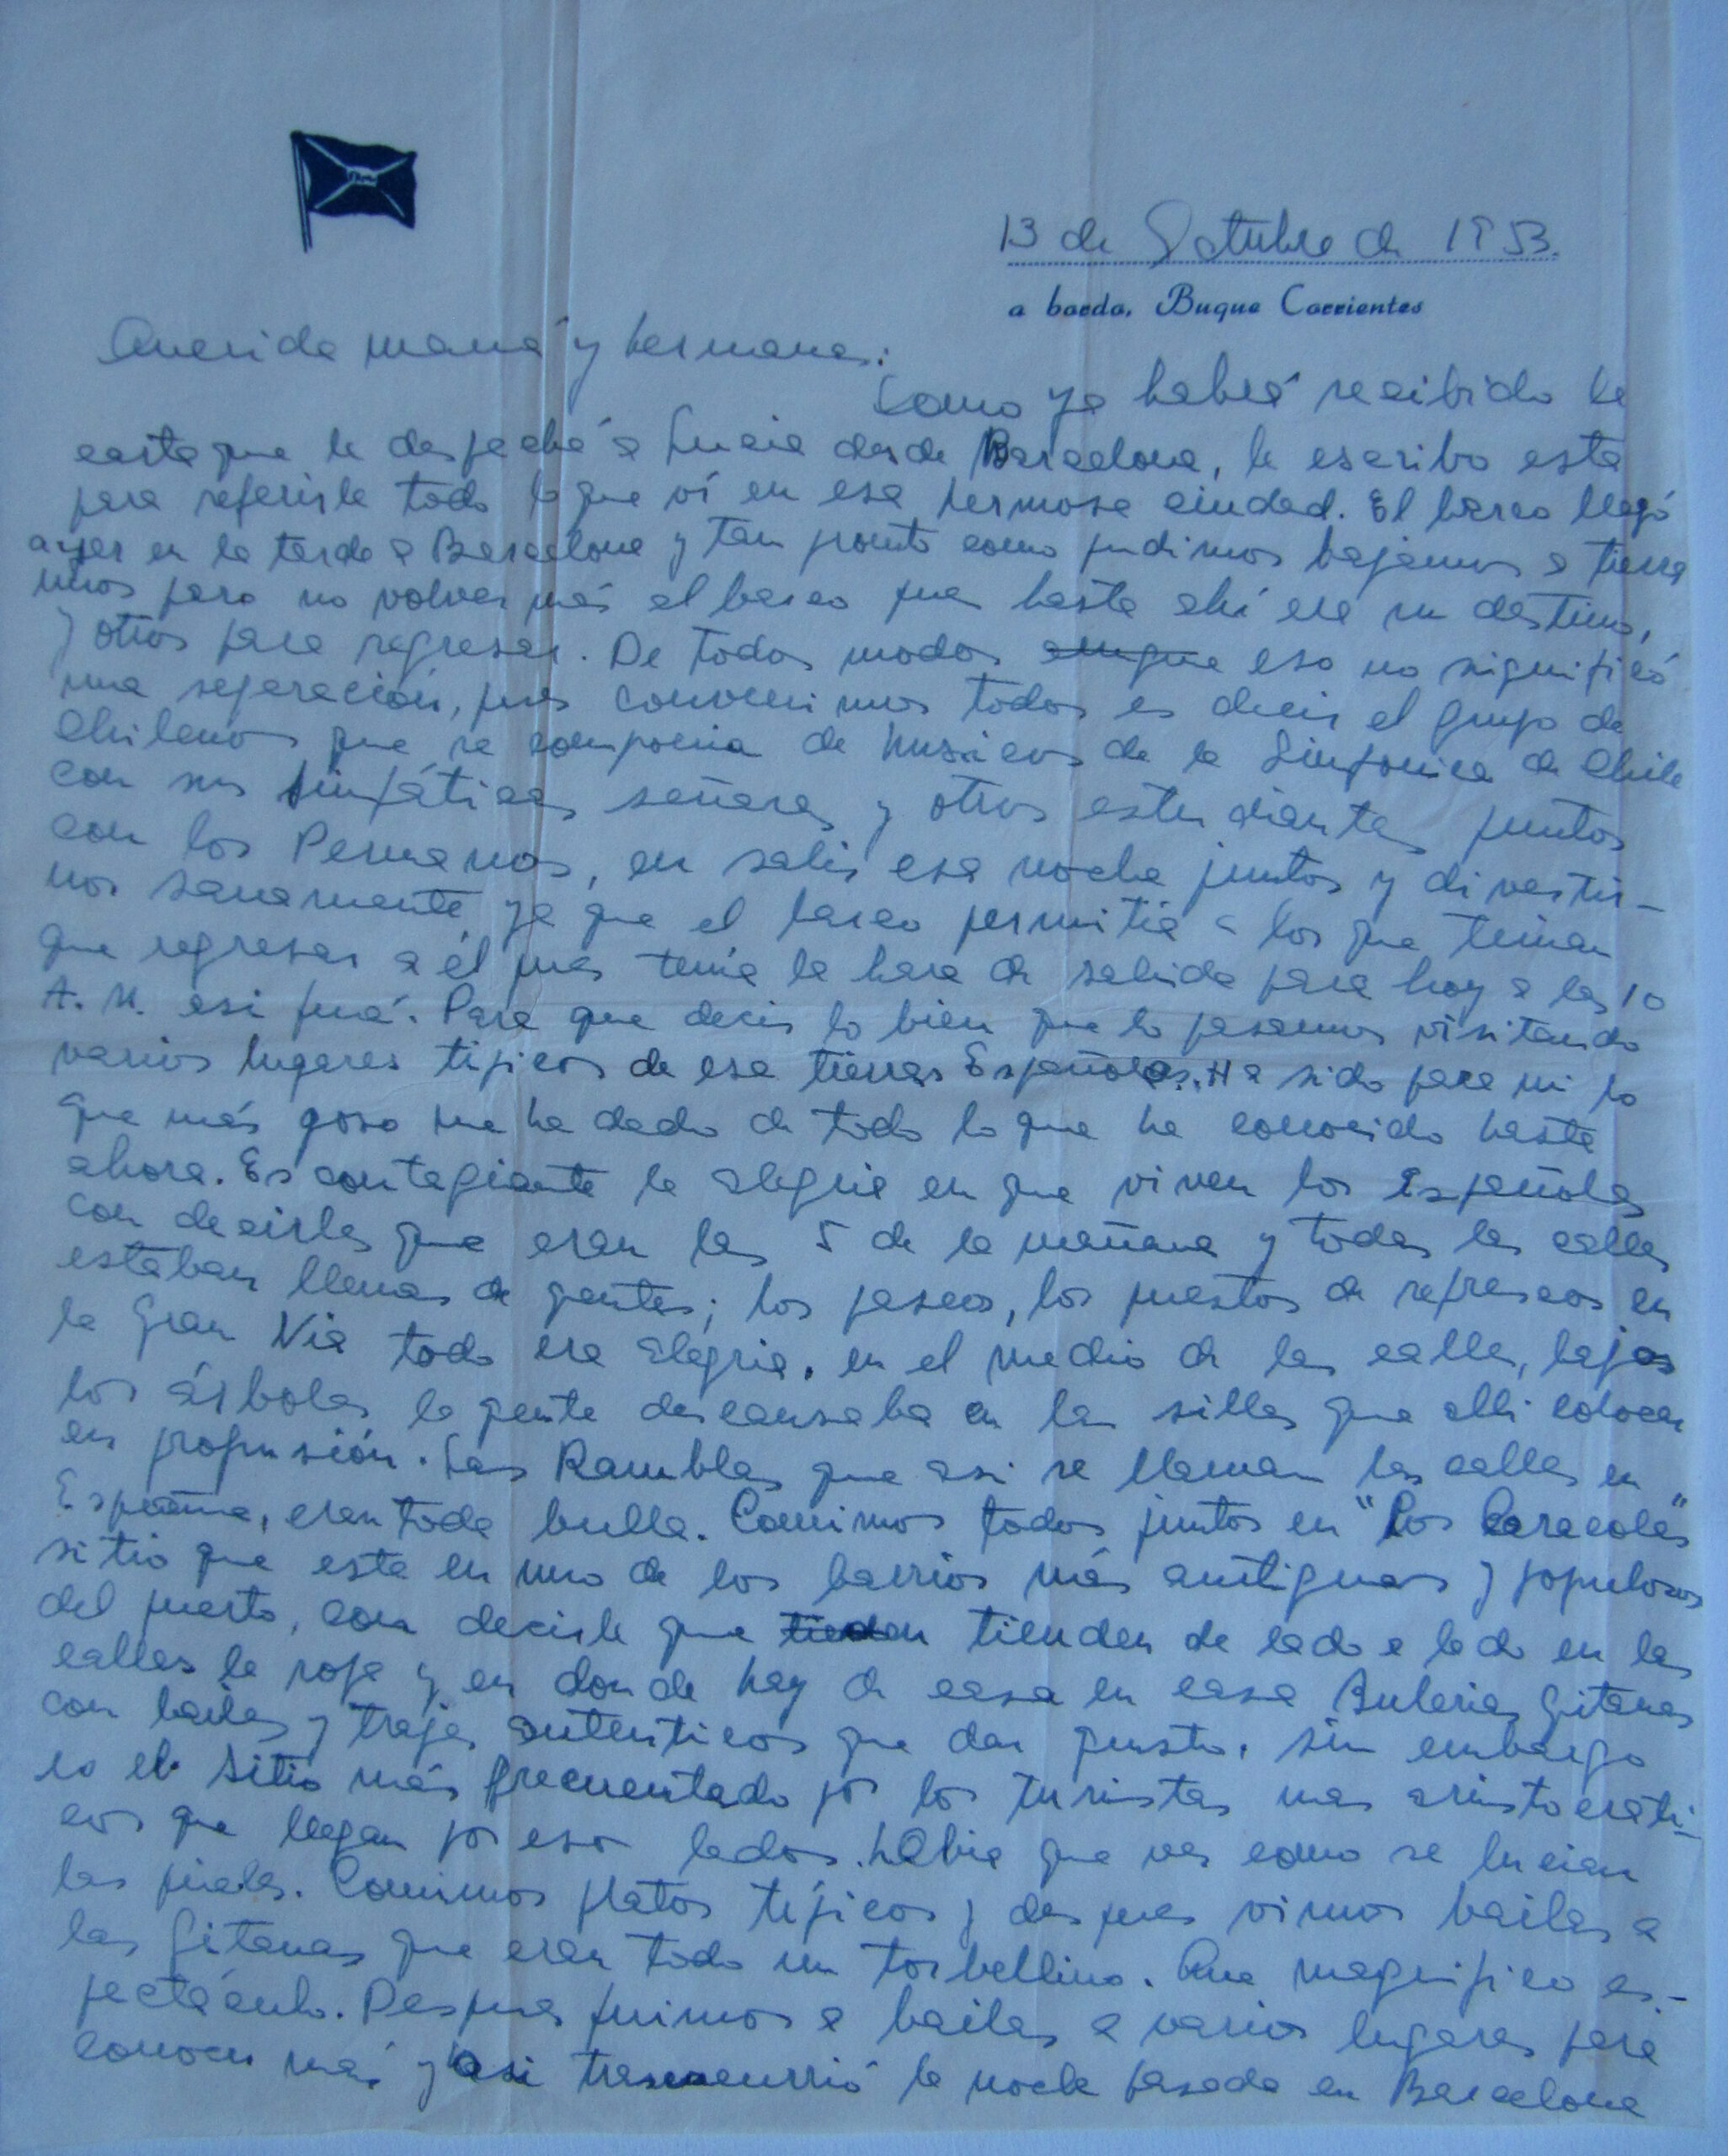 13 de Octubre de 1953.
a bordo, Buque Corrientes
Querida mamá y hermana:
Como ya habrá recibido la
carta que le despaché a Lucia desde Barcelona, le escribo esta
para referirle todo lo que ví en esa hermosa ciudad. El barco llegó
ayer en la tarde a Barcelona y tan pronto como pudimos bajamos a tierra
unos para no volver más al barco pues hasta ahí era su destino,
y otros para regresar. De todos modos aunque eso no significó
una separación, pues convenimos todos es decir el grupo de
Chilenos que se componia de Musicos de la Sinfonica de Chile
con sus simpáticas señoras y otros estudiantes juntos
con los Peruanos, en salir esa noche juntos y divertir-
nos sanamente ya que el barco permitia a los que tenían
que regresar a él pues tenía la hora de salida para hoy a las 10
A.M. asi fué. Para que decir lo bien que lo pasamos visitando
varios lugares tipicos de esa tierras Españolas. Ha sido para mi lo
que más goso me ha dado de todo lo que he conocido hasta
ahora. Es contagiante la alegria en que viven los Españoles
con decirles que eran las 5 de la mañana y todas las calles
estaban llenas de gentes; los paseos, los puestos de refrescos en
la Gran Via todo era alegria. en el medio de las calles, bajos
los árboles la gente descansaba en las sillas que alli colocan
en profusión. Las Ramblas que asi se llaman las calles en
España, eran toda bulla. Comimos todos juntos en "Los Caracoles"
sitio que esta en uno de los barrios más antiguos y populosos
del puerto, con decirle que tienden tienden de lado a lado en las
calles la ropa y en donde hay de casa en casa Bulerias gitanas
con bailes y trajes autenticos que dan gusto. sin embargo
es el sitio más frecuentado por los turistas mas aristocrati-
cos que llegan por esos lados. Habia que ver como se lucian
las pieles. Comimos platos típicos y despues vimos bailar a
las Gitanas que eran todo un torbellino. Que magnifico es-
pectáculo. Despues fuimos a bailar a varios lugares para
conocer más y asi trascurrió la noche pasada en Barcelona